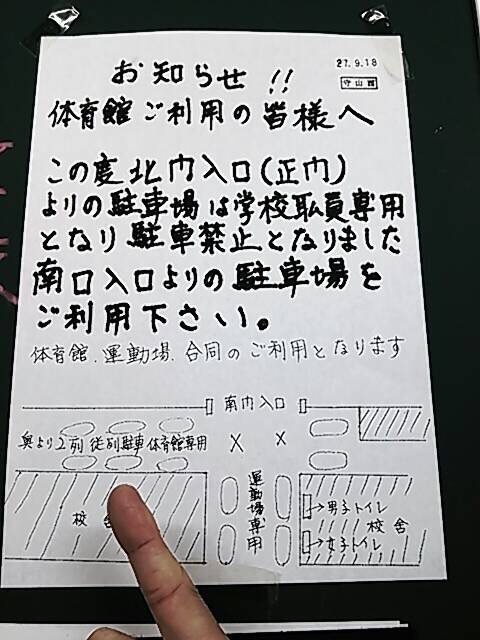 27.9.18
守山西
お知らせ!!
体育館ご利用の皆様へ
この度北門入口(正門)
よりの駐車場は学校職員専用
となり駐車禁止となりました
南口入口よりの駐車場を
ご利用下さい。
体育館.運動場.合同のご利用となります
南門入口
奥より2列 従列駐車 体育館専用
× ×
運動場専用
男子トイレ
校舎
女子トイレ
校